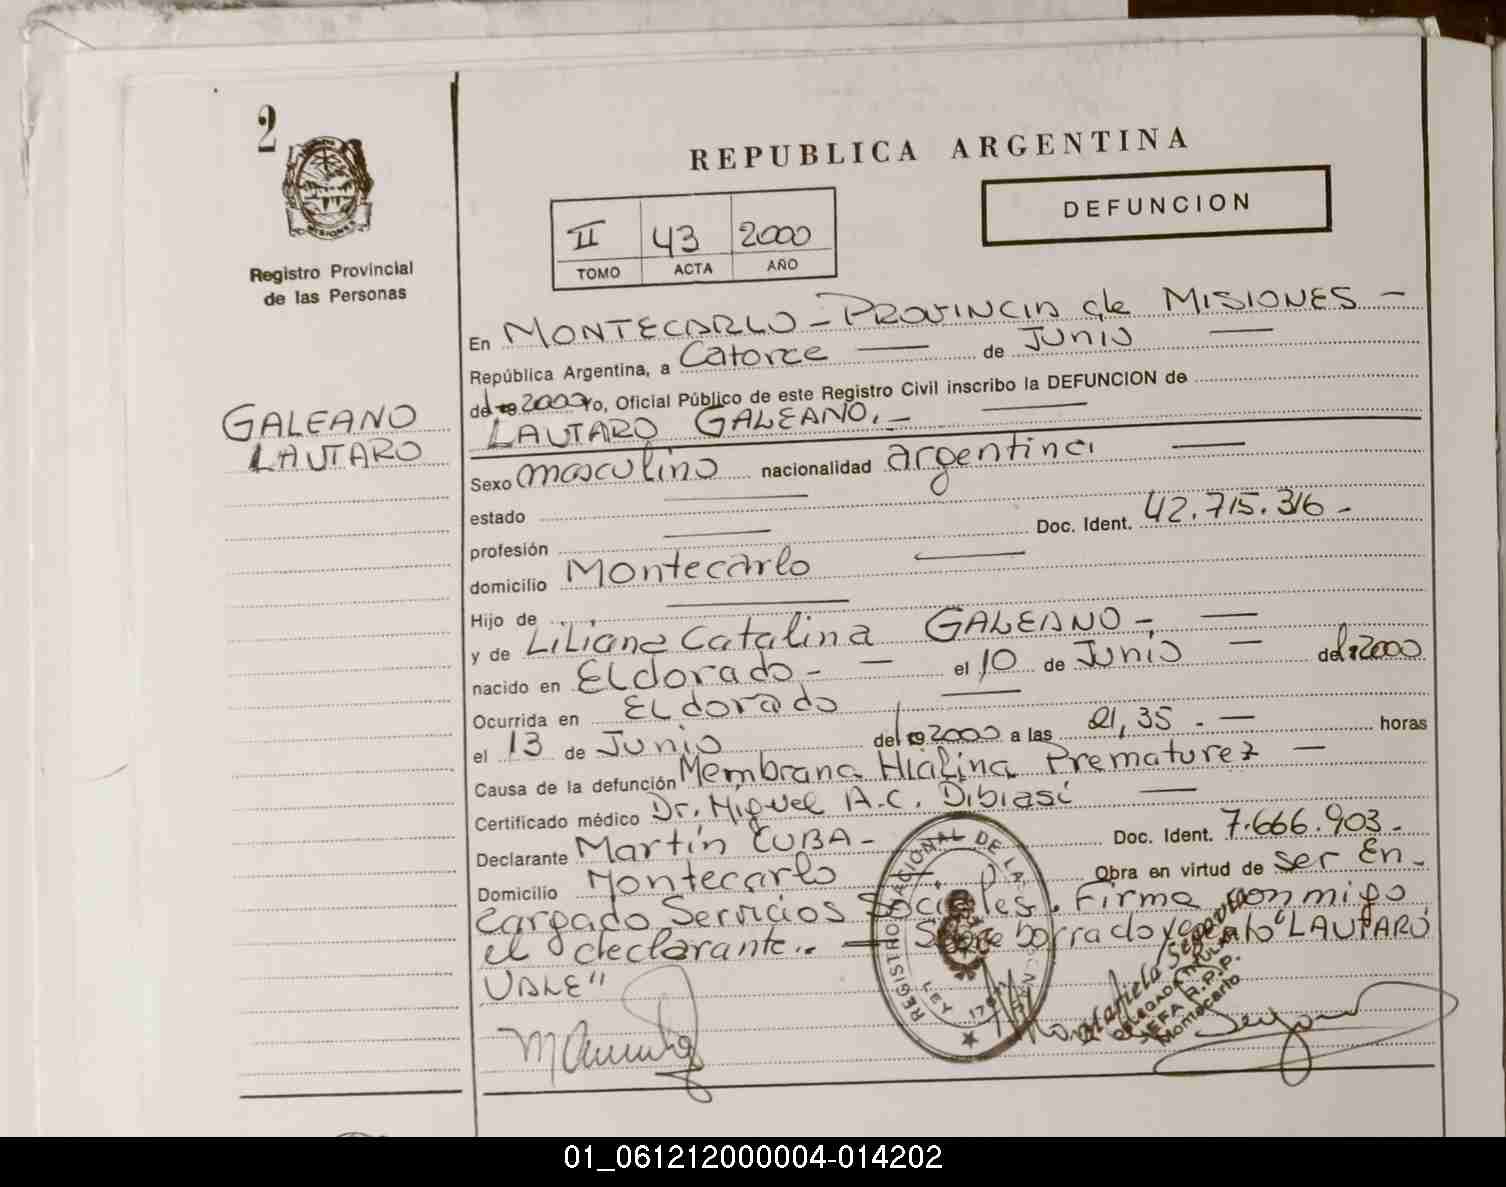 2
MISIONES
Registro Provincial
de las Personas
GALEANO
LAUTARO
REPUBLICA ARGENTINA
DEFUNCION
II 43 2000
TOMO ACTA AÑO
En MONTECARLO - PROVINCIA de MISIONES -
República Argentina, a Catorce de Junio
del 2000 Yo, Oficial Público de este Registro Civil inscribo la DEFUNCION de
LAUTARO GALEANO.-
Sexo masculino nacionalidad argentina
estado
profesión Doc. Ident. 42.715.316.-
domicilio Montecarlo
Hijo de
y de Liliana Catalina GALEANO -
nacido en Eldorado - el 10 de Junio del 2000
Ocurrida en Eldorado
el 13 de Junio del 2000 a las 21,35.- horas
Causa de la defunción Membrana Hialina Prematurez
Certificado médico Dr. Miguel A.C. Dibiasi
Declarante Martín CUBA - Doc. Ident. 7.666.903.-
Domicilio Montecarlo Obra en virtud de ser En-
cargado Servicios Sociales. Firma conmigo
el declarante.. - Sobre borrado "LAUTARO
VALE"
REGISTRO NACIONAL DE LAS
LEY
DELEGADA TITULAR
JEFA R.P.P.
Montecarlo
01_061212000004-014202